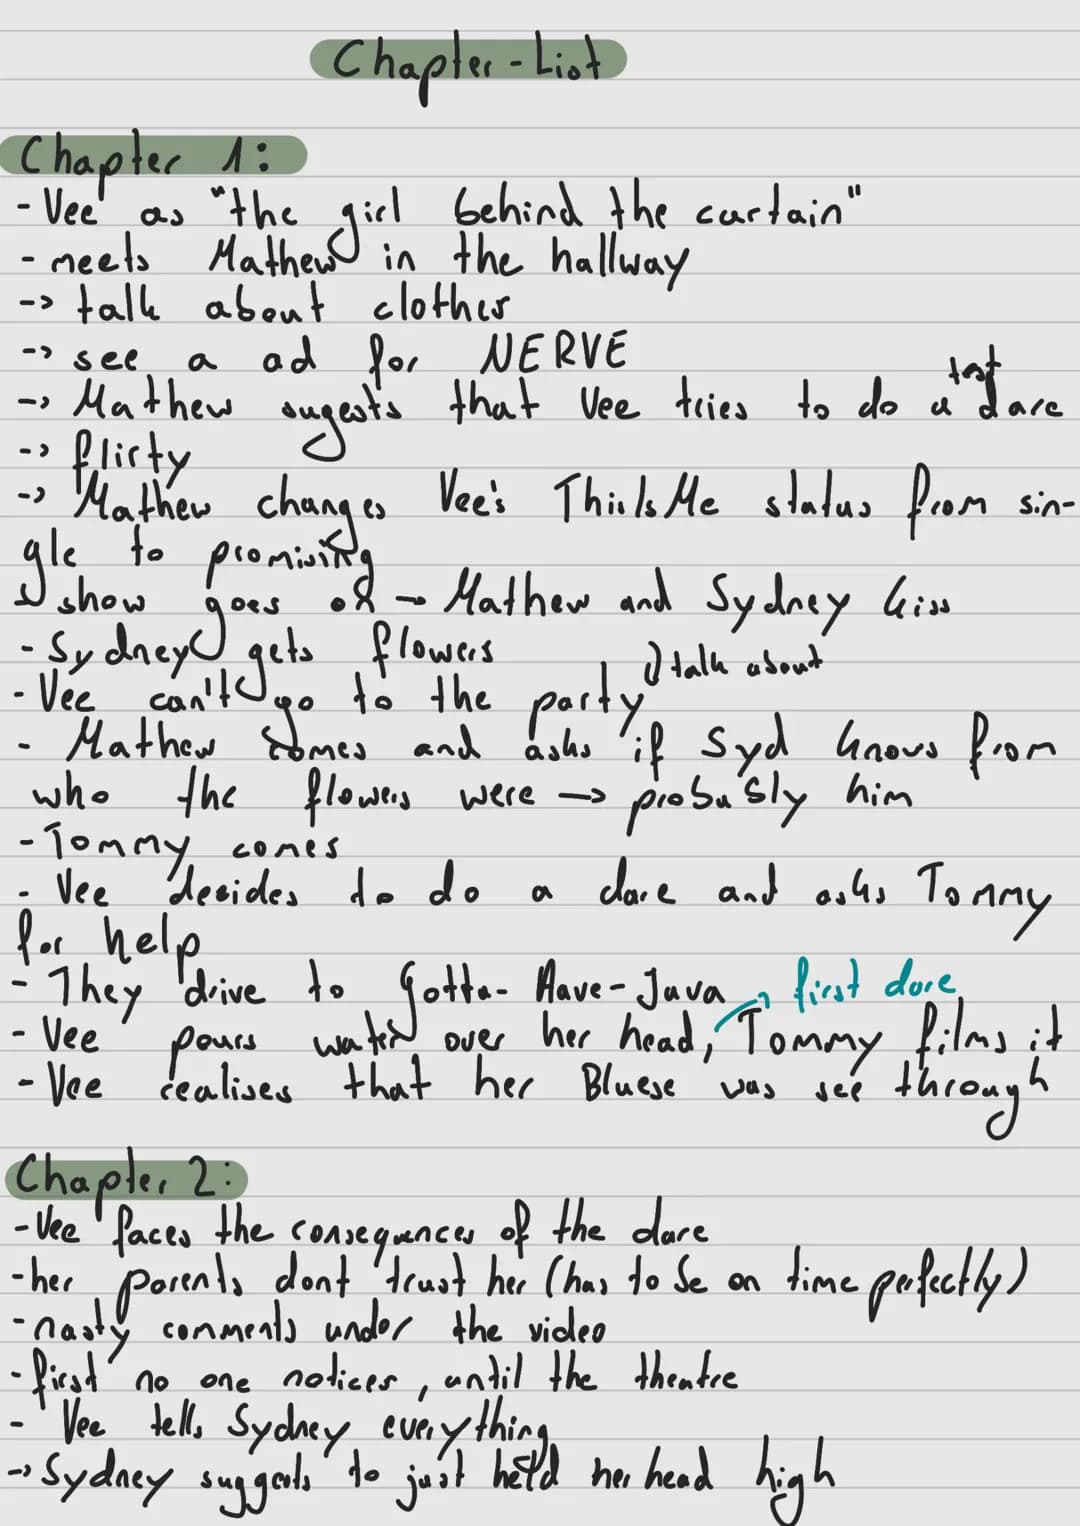 Chapter-List
Chapter 1:
- Vee as "the girl behind the curtain"
- meets Mathew in the hallway
-> talk about clothes
-> see a ad for NERVE
-> Mathew sugests that Vee tries to do a test dare
-> flirty
-> Mathew changes Vee's ThisIsMe status from sin-
gle to promising
show goes on → Mathew and Sydney kiss
- Sydney gets flowers
talk about
- Vee can't go to the party
- Mathew comes and asks if Syd knows from
who the flowers were -> probably him
- Tommy comes
- Vee decides to do a dare and asks Tommy
for help
- They drive to Gotta-Have-Java
first dare
- Vee pours water over her head, Tommy films it
- Vee realises that her Bluese was see through
Chapter 2:
- Vee faces the consequences of the dare
- her parents dont trust her (has to be on time perfectly)
- nasty comments under the video
- first no one notices, until the theatre
- Vee tells Sydney everything
-> Sydney suggests to just held her head high